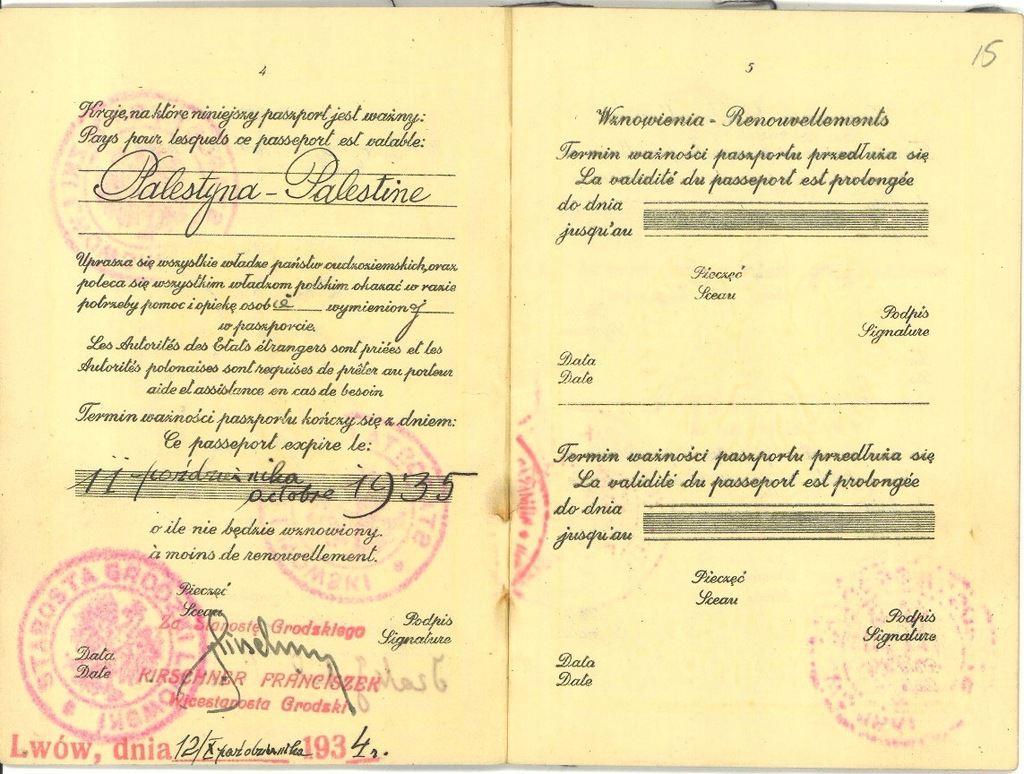 4
Kraje, na które niniejszy paszport jest ważny:
Pays pour lesquels ce passeport est valable:
Palestyna - Palestine
Uprasza się wszystkie władze państw cudzoziemskich, oraz
poleca się wszystkim władzom polskim okazać w razie
potrzeby pomoc i opiekę osobie wymienionej
w paszporcie.
Les Autorités des Etats étrangers sont priées et les
Autorités polonaises sont requises de prêter au porteur
aide et assistance en cas de besoin
Termin ważności paszportu kończy się z dniem:
Ce passeport expire le:
11 października
octobre 1935
o ile nie będzie wznowiony.
à moins de renouvellement.
Pieczęć
Sceau
Za Starostę Grodzkiego
Podpis
Signature
Data
Date
KIRSCHNER FRANCISZEK
Wicestarosta Grodzki
STAROSTA GRODZKI LWOWSKI
Lwów, dnia 12/X października 1934 r.
15
5
Wznowienia - Renouvellements
Termin ważności paszportu przedłuża się
La validité du passeport est prolongée
do dnia
jusqu'au
Pieczęć
Sceau
Podpis
Signature
Data
Date
Termin ważności paszportu przedłuża się
La validité du passeport est prolongée
do dnia
jusqu'au
Pieczęć
Sceau
Podpis
Signature
Data
Date